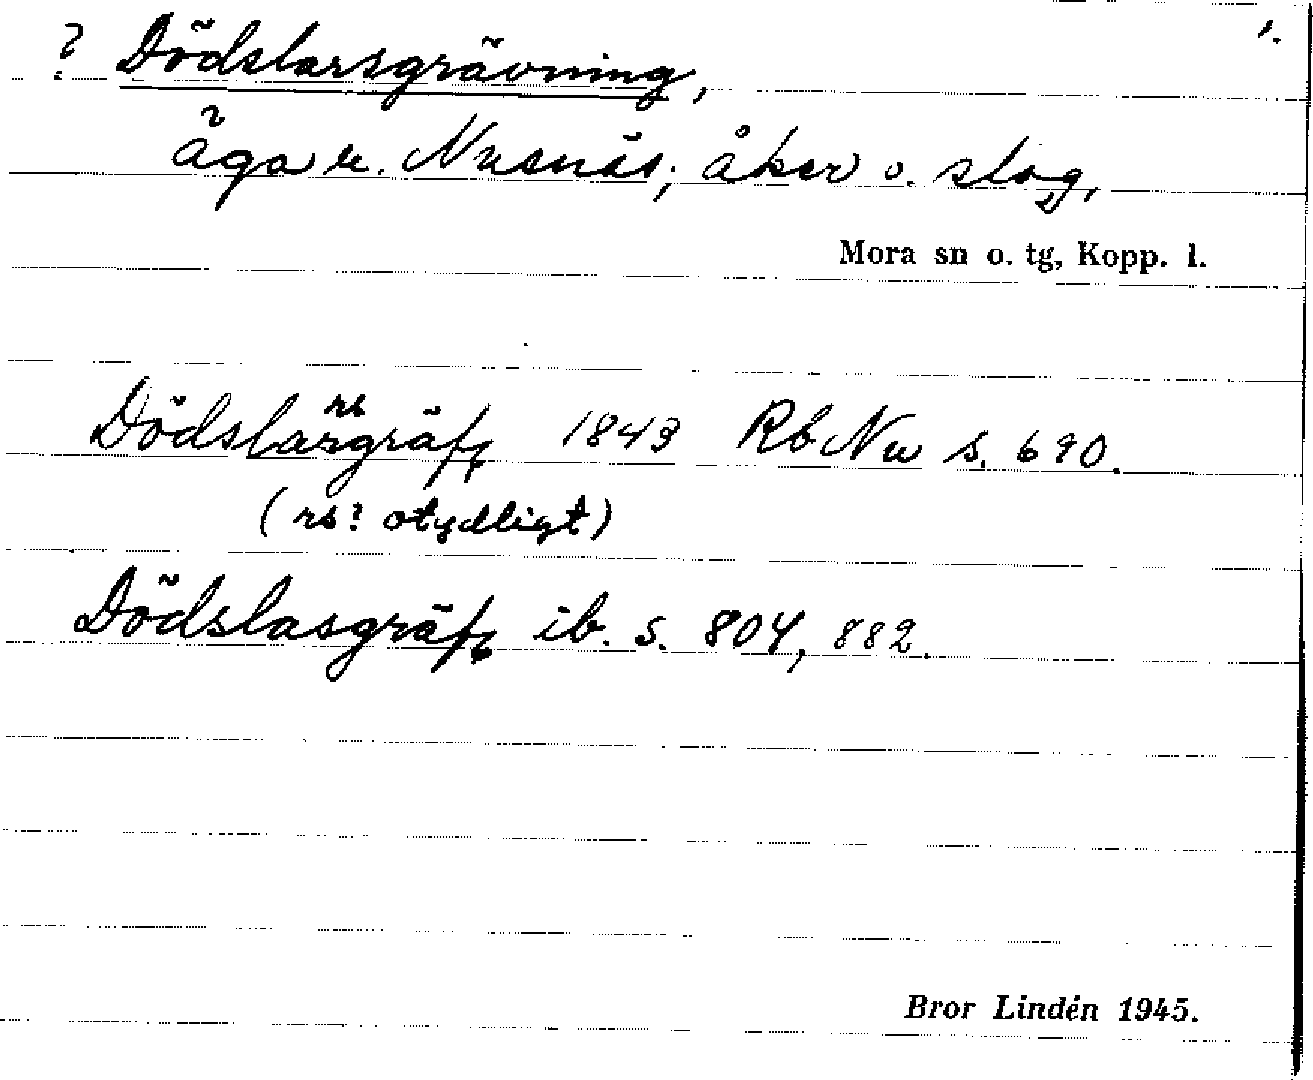 1.
? Dödslarsgrävning,
äga u. Nusnäs; åker o. slog,
Mora sn o. tg, Kopp. l.
rs
Dödslarsgräf, 1843 Rb Nu s. 690.
(rs? otydligt)
Dödslasgräf, ib. s. 804, 882.
Bror Lindén 1945.